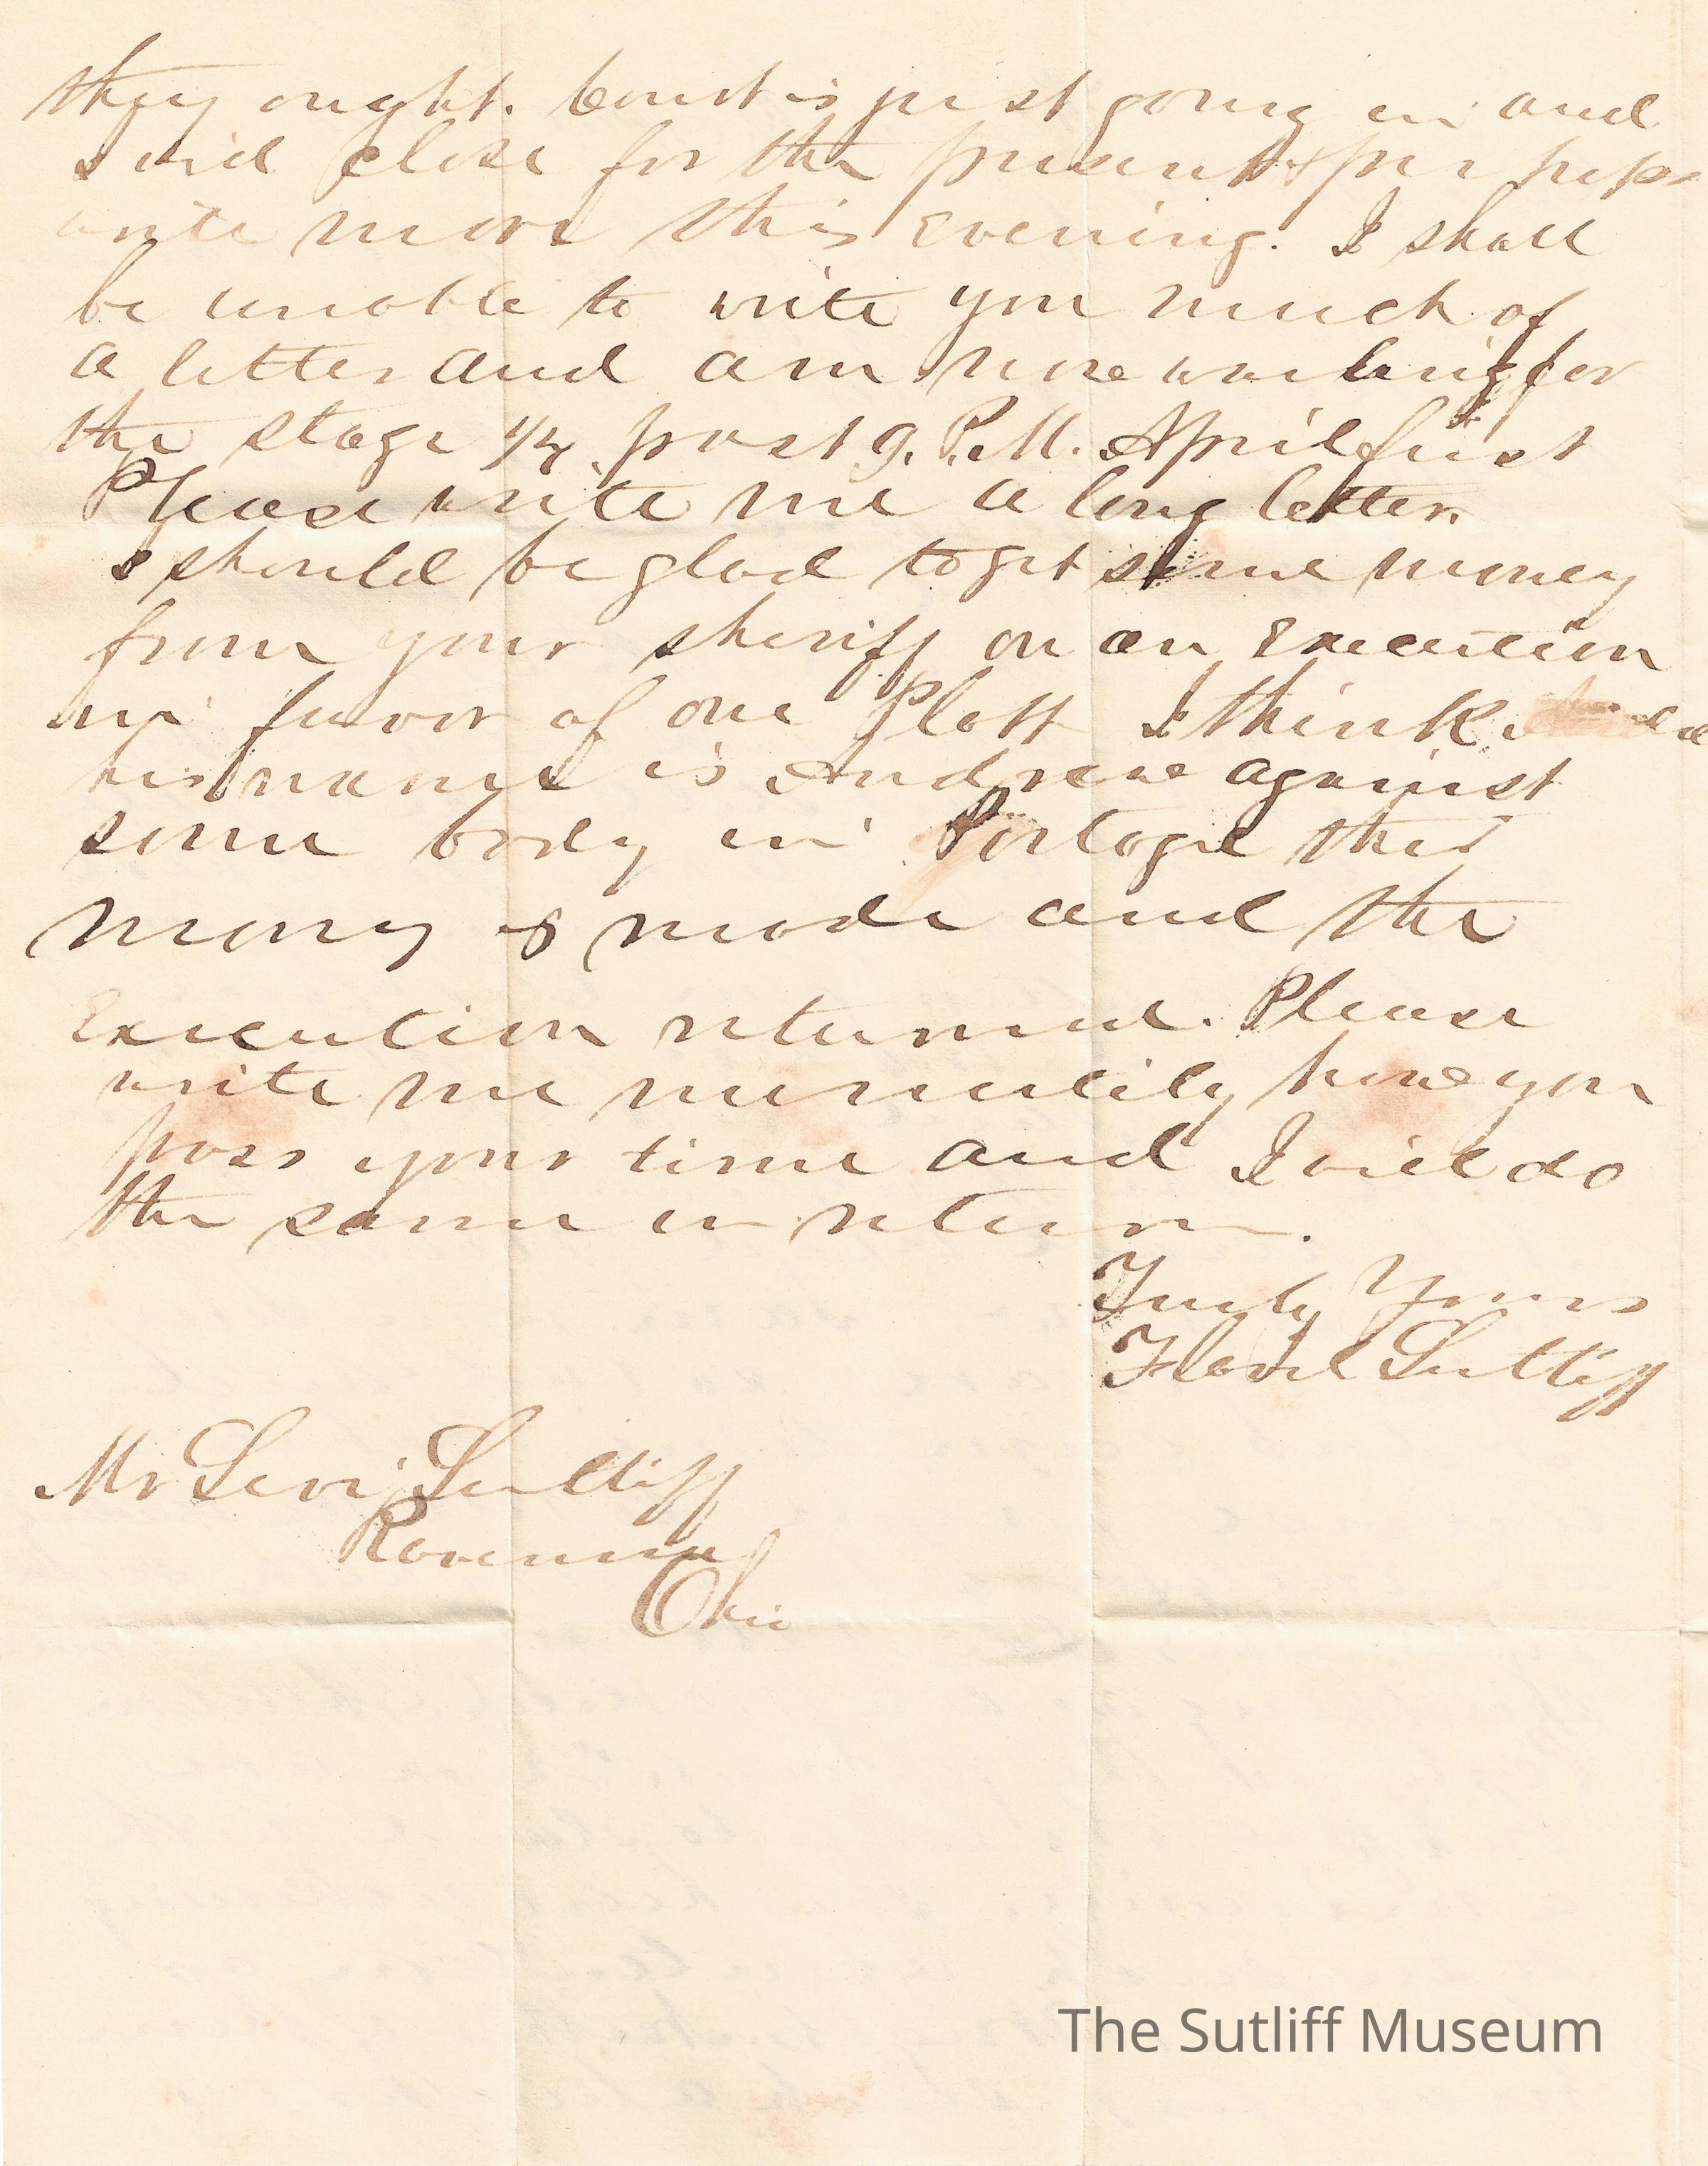 they ought. Court is just going in and
I will close for the present & perhaps
write more this Evening. I shall
be unable to write you much of
a letter and am now waiting for
the stage 1/4 past 9. P.M. April first
Please write me a long letter.
I should be glad to get some money
from your sheriff on an Execution
in favor of one Platt I think.
his name is Andrew against
some body in Portage the
money is made and the
Execution returned. Please
write me minutily how you
pass your time and I will do
the same in return.
Truly Yours
Flavel Sutliff
Mr Levi Sutliff
Ravenna
Ohio
The Sutliff Museum